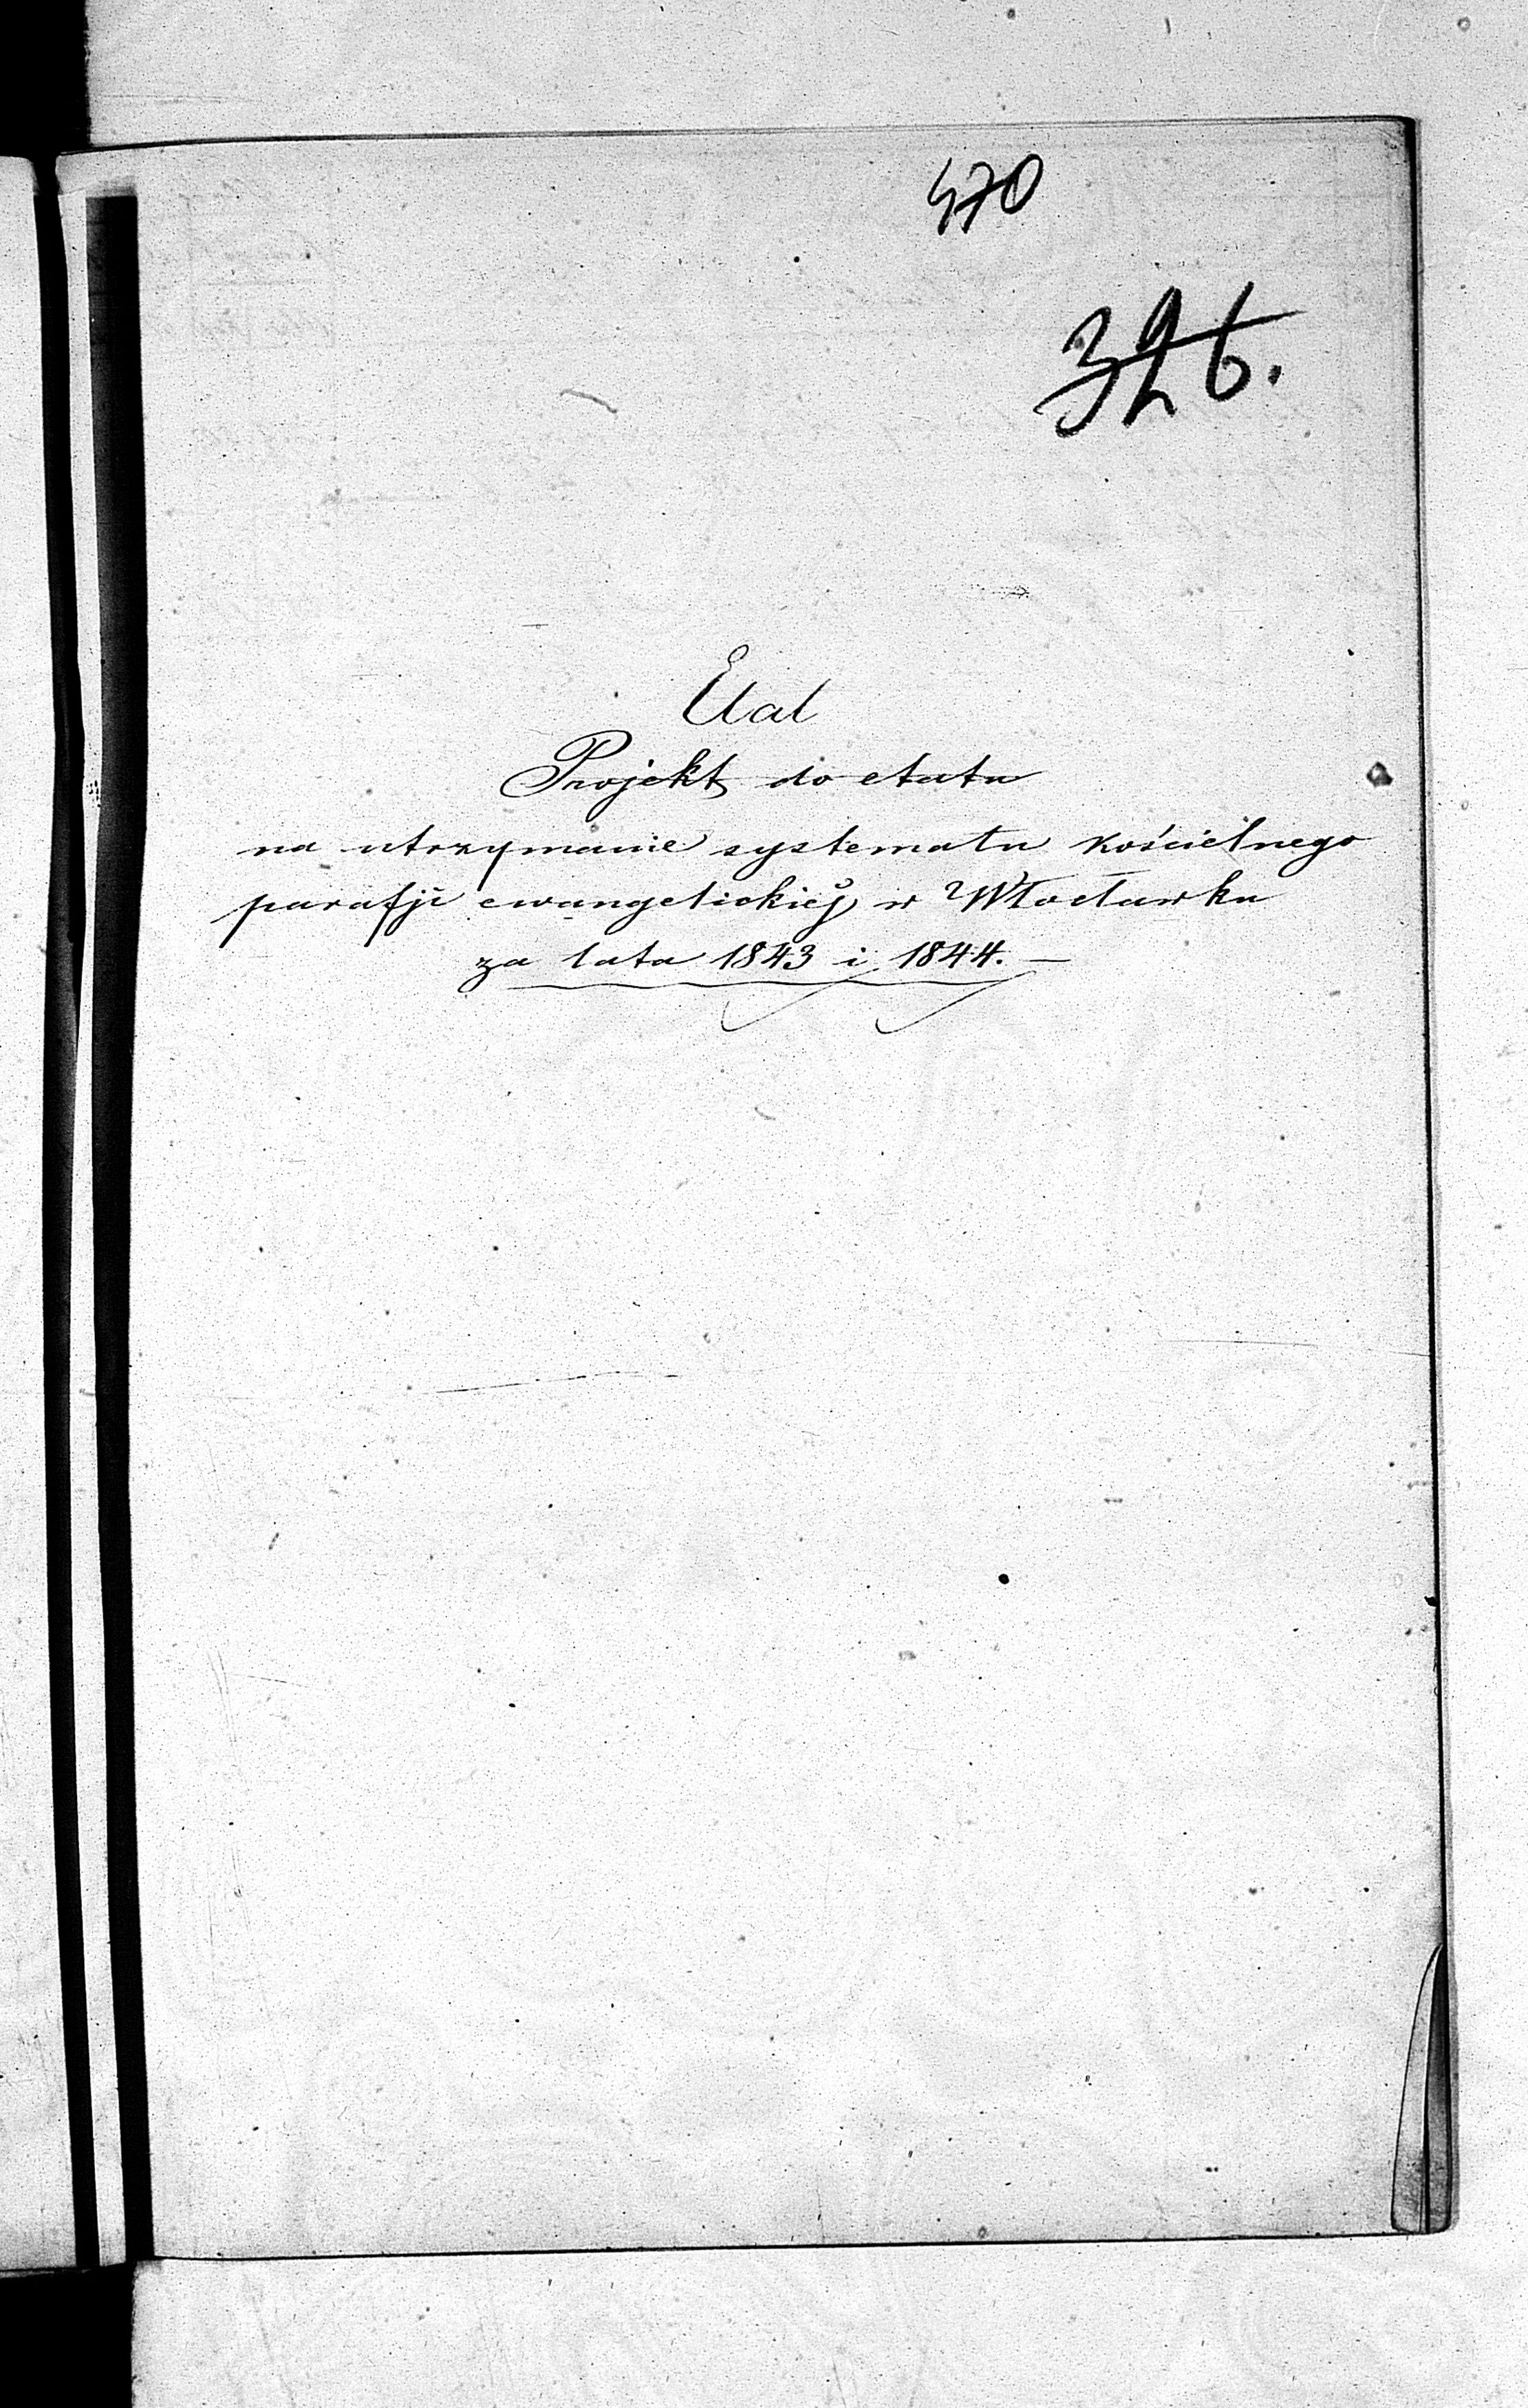 470
326.
Etat
Projekt do etatu
na utrzymanie systematu kościelnego
parafji ewangelickiéj w Włocławku
za lata 1843 i 1844. —